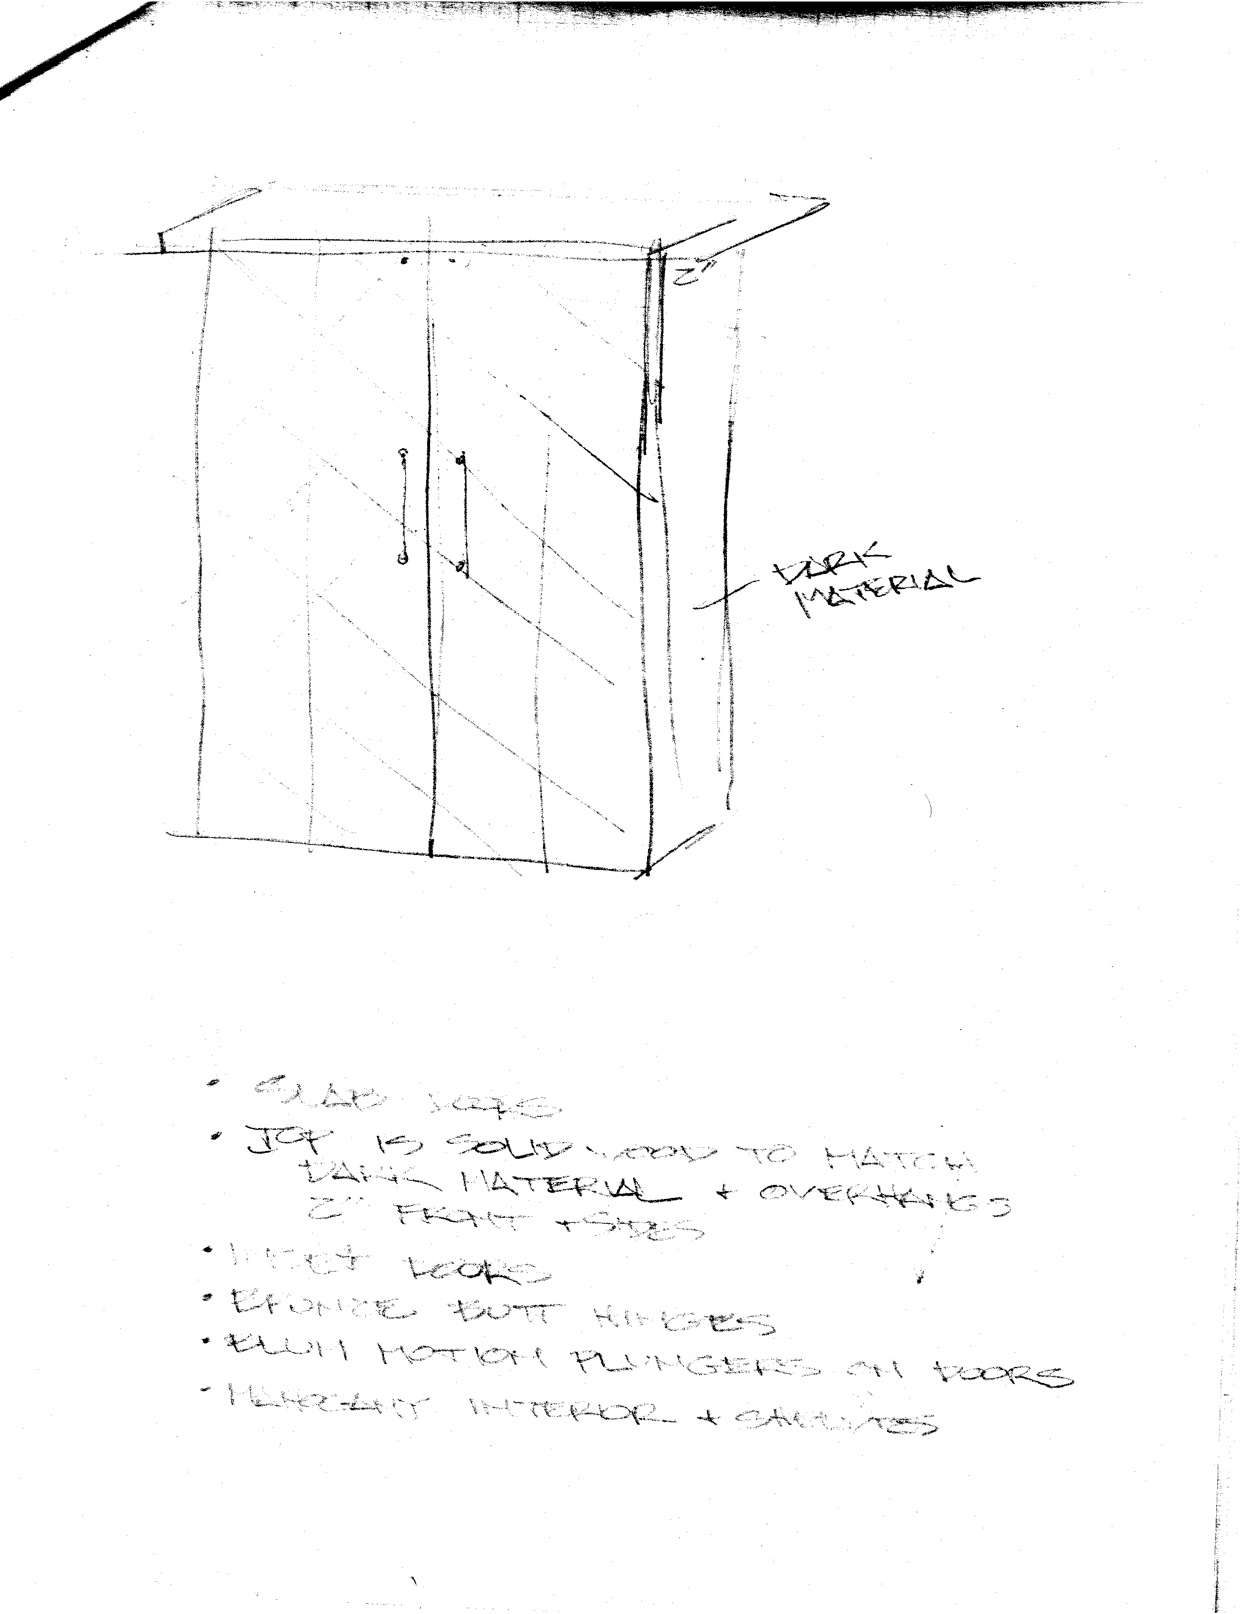 2"
DARK
MATERIAL
• SLAB DOORS
• TOP IS SOLID WOOD TO MATCH
DARK MATERIAL + OVERHANGS
2" FRONT + SIDES
• INSET DOORS
• BRONZE BUTT HINGES
• BLUM MOTION PLUNGERS ON DOORS
• MAHOGANY INTERIOR +